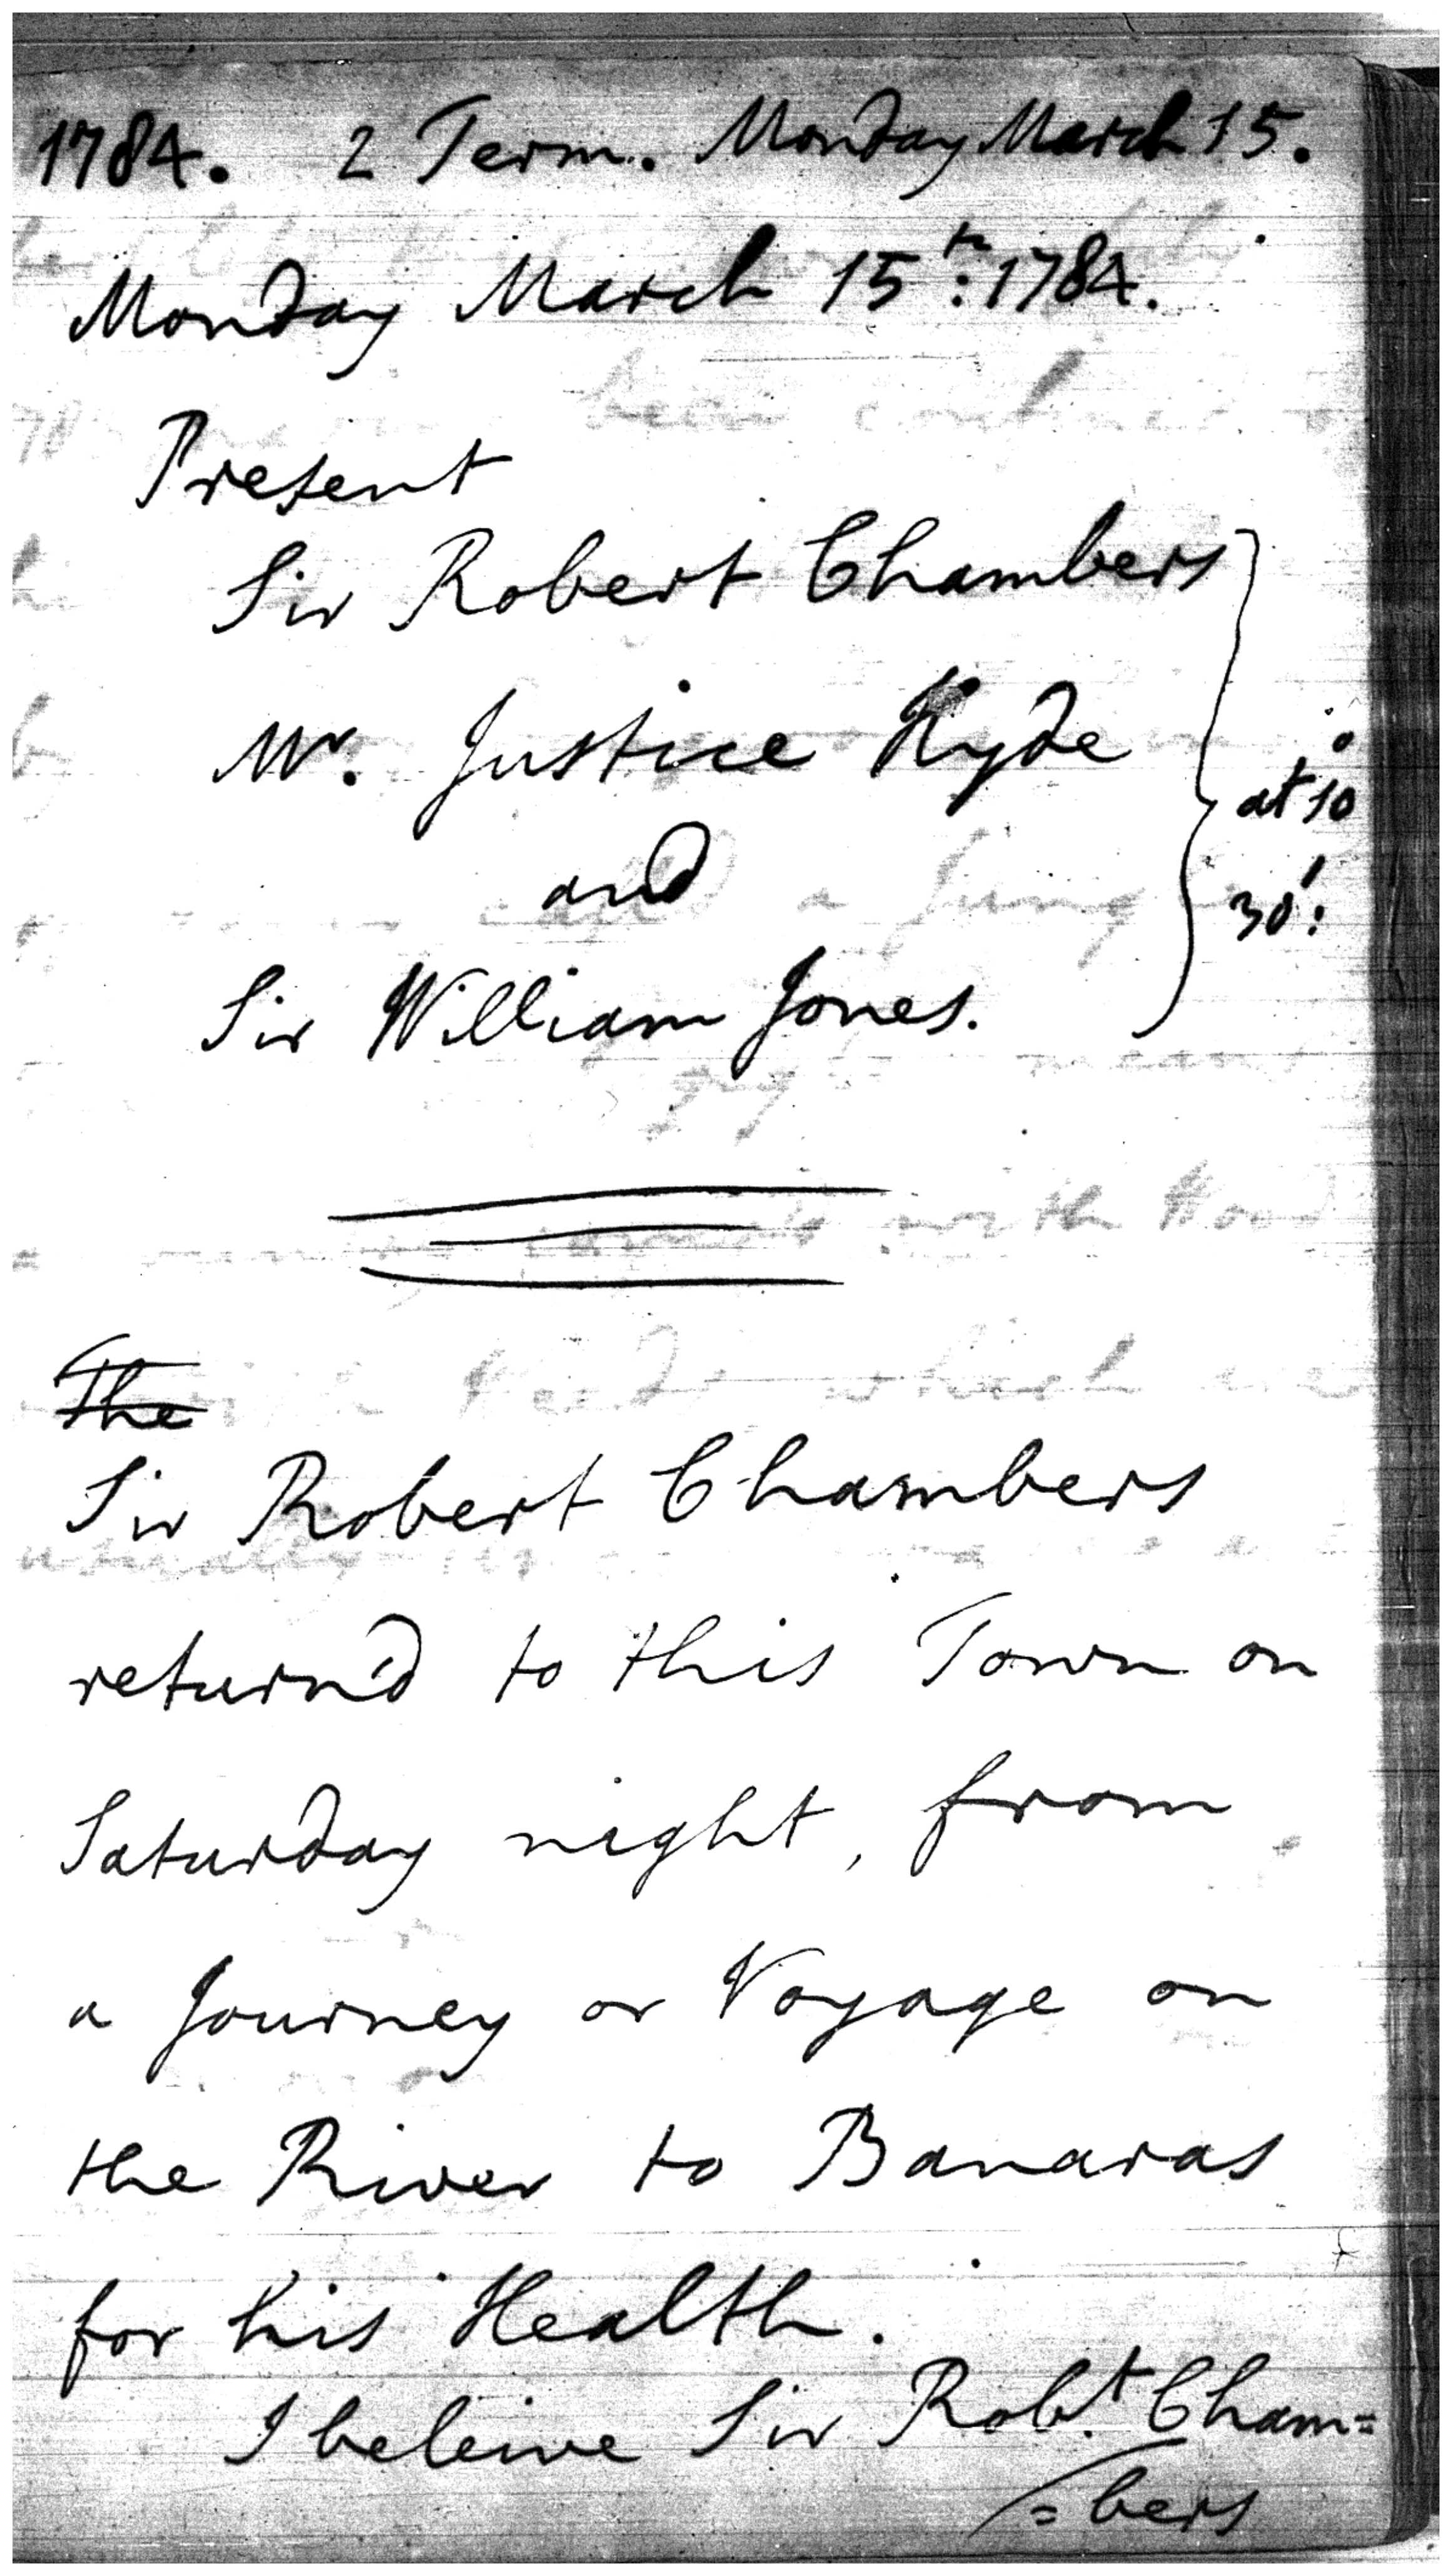 1784. 2 Term. Monday March 15.
Monday March 15th: 1784.
Present
Sir Robert Chambers
Mr. Justice Hyde
at 10°
and
30':
Sir William Jones.
The
Sir Robert Chambers
return'd to this Town on
Saturday night, from
a Journey or Voyage on
the River to Banaras
for his Health.
I beleive Sir Robt. Cham=
=bers